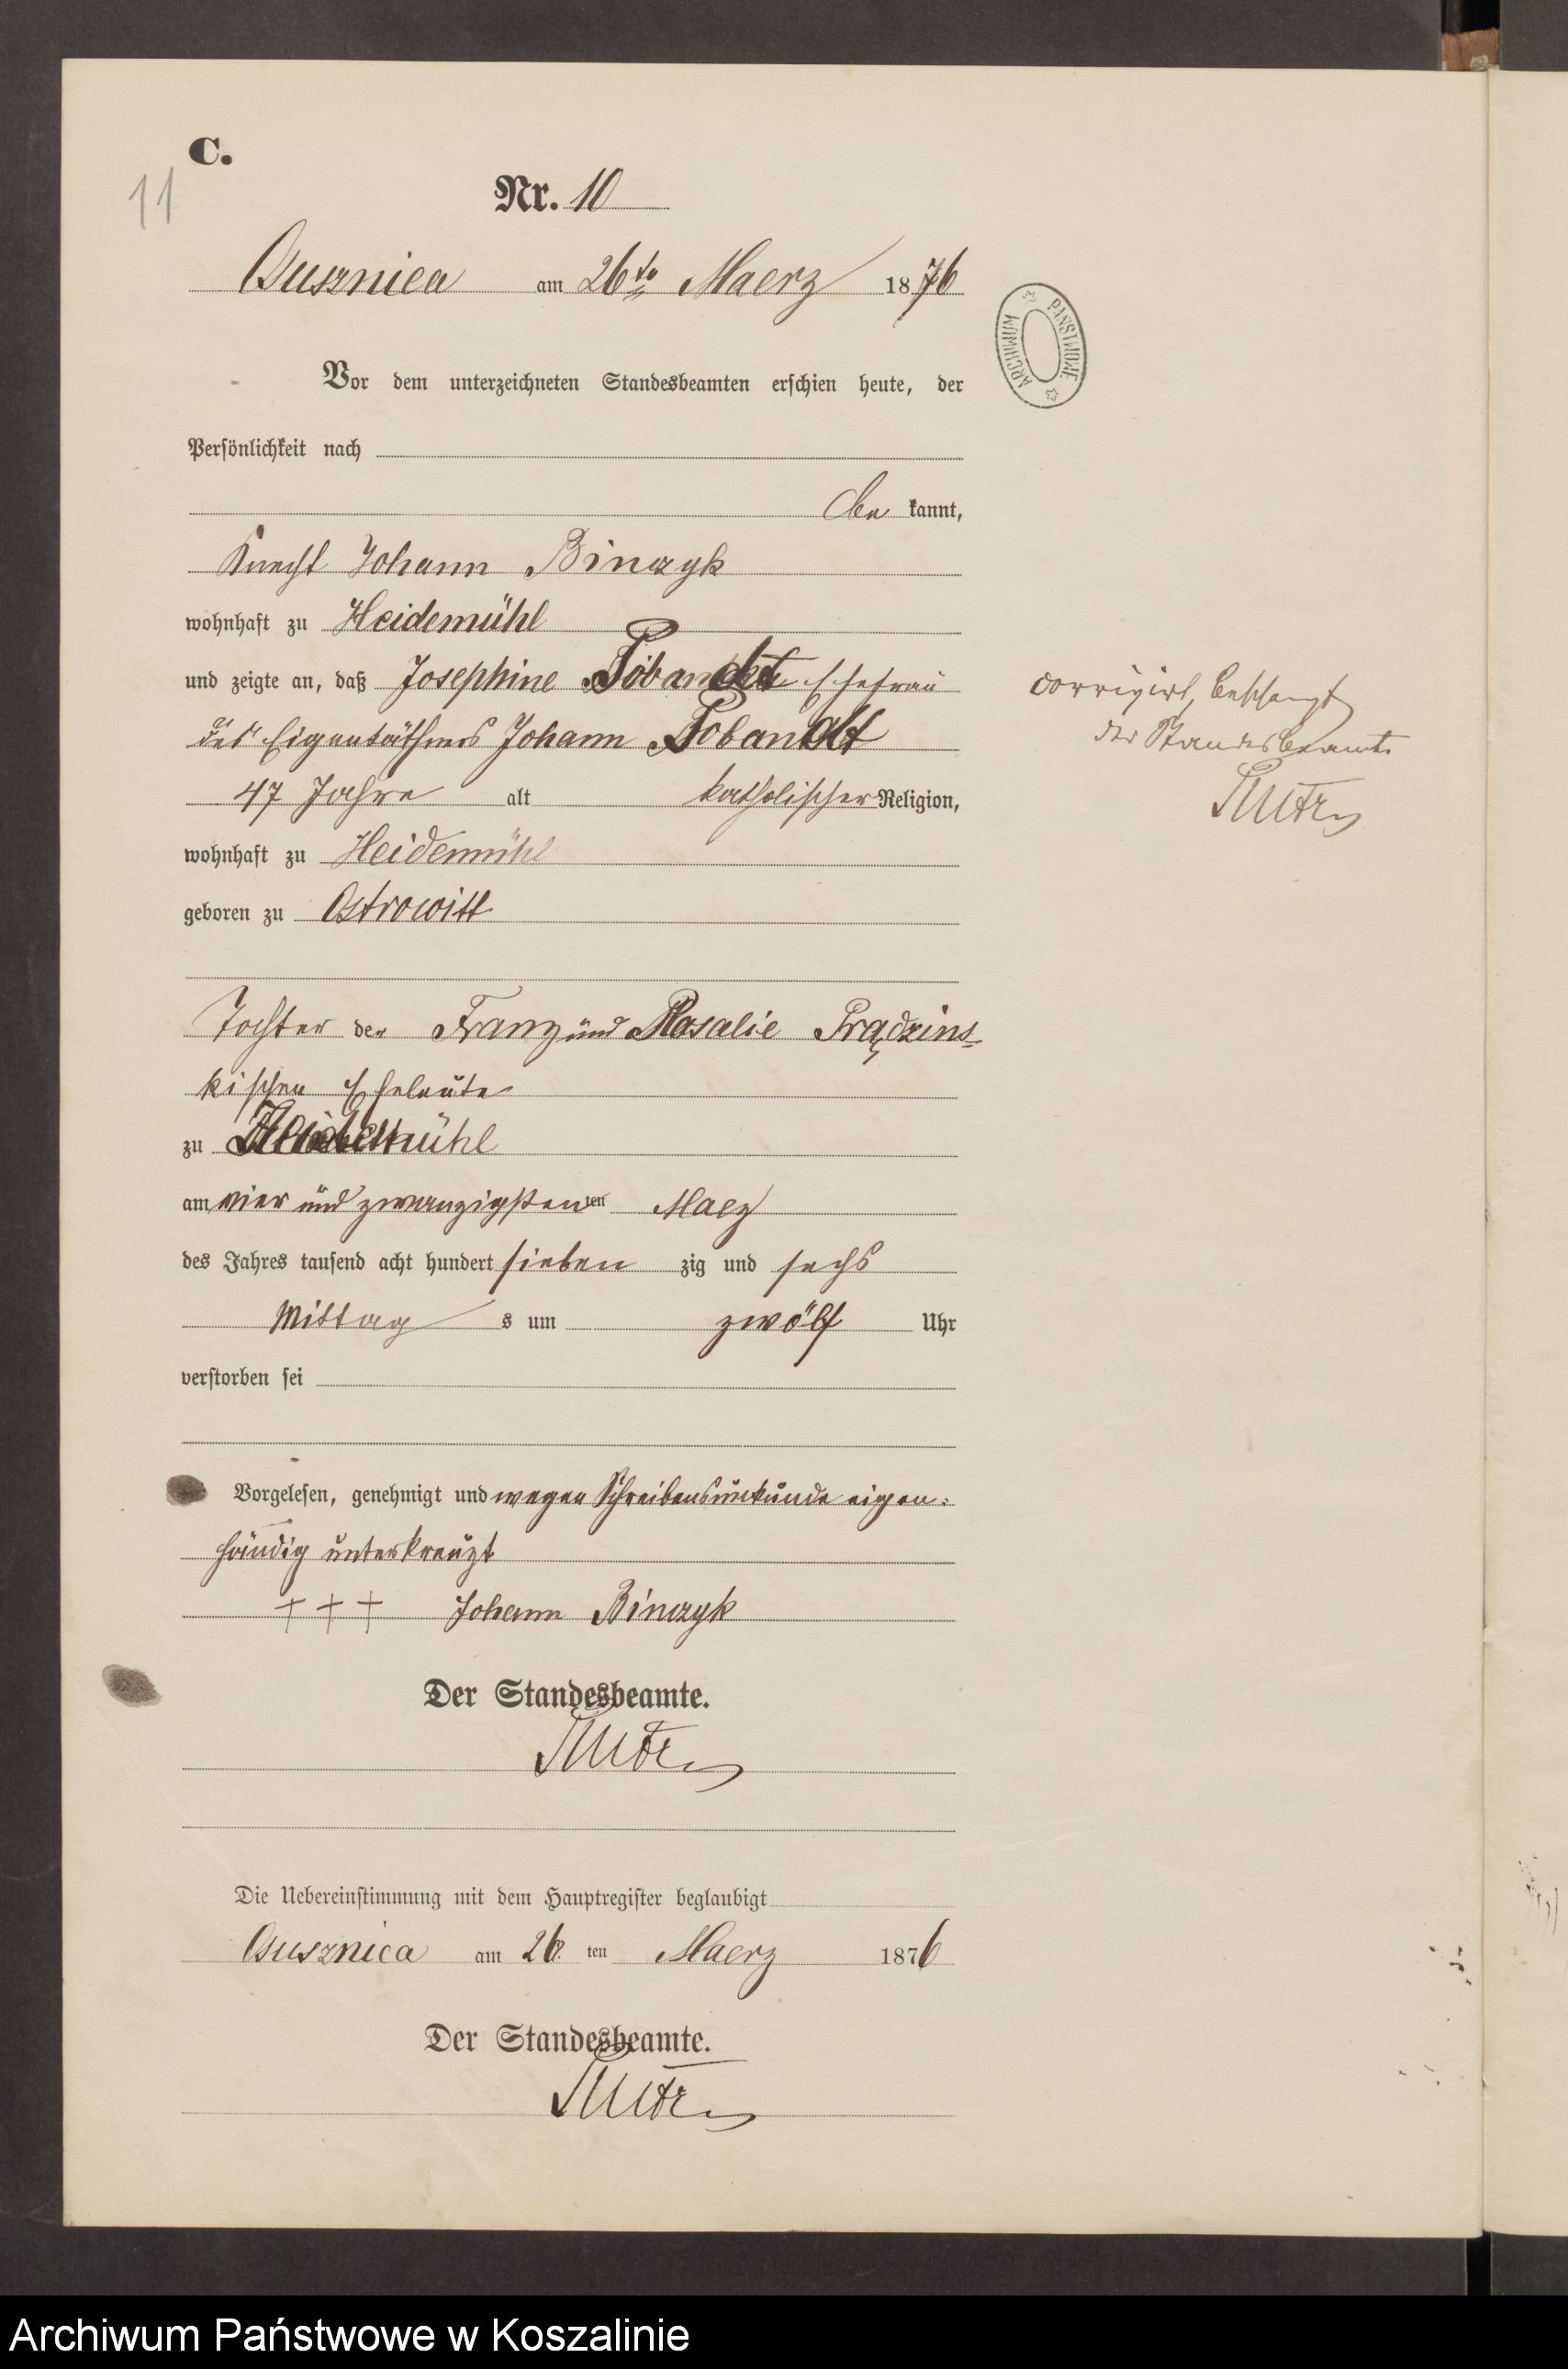 C.
11
Nr. 10
Ousznica am 26ten Maerz 1876
PAŃSTWOWE
ARCHIWUM
Vor dem unterzeichneten Standesbeamten erschien heute, der
Persönlichkeit nach
be kannt,
Knecht Johann Binczyk
wohnhaft zu Heidemühl
und zeigte an, daß Josephine Ehefrau
des Eigenthümers Johann
corrigirt, bescheinigt
der Standesbeamte
47 Jahre alt katholischer Religion,
wohnhaft zu Heidemühl
geboren zu Ostrowitt
Tochter der Franz und Rosalie Prądzins-
kischen Eheleute
zu Heidemühl
am vier und zwanzigsten ten Maez
des Jahres tausend acht hundert sieben zig und sechs
Mittag s um zwölf Uhr
verstorben sei
Vorgelesen, genehmigt und wegen Schreibensunkunde eigen-
händig unterkreuzt
+++ Johann Binczyk
Der Standesbeamte.
Die Uebereinstimmung mit dem Hauptregister beglaubigt
Ousznica am 26. ten Maerz 1876
Der Standesbeamte.
Archiwum Państwowe w Koszalinie